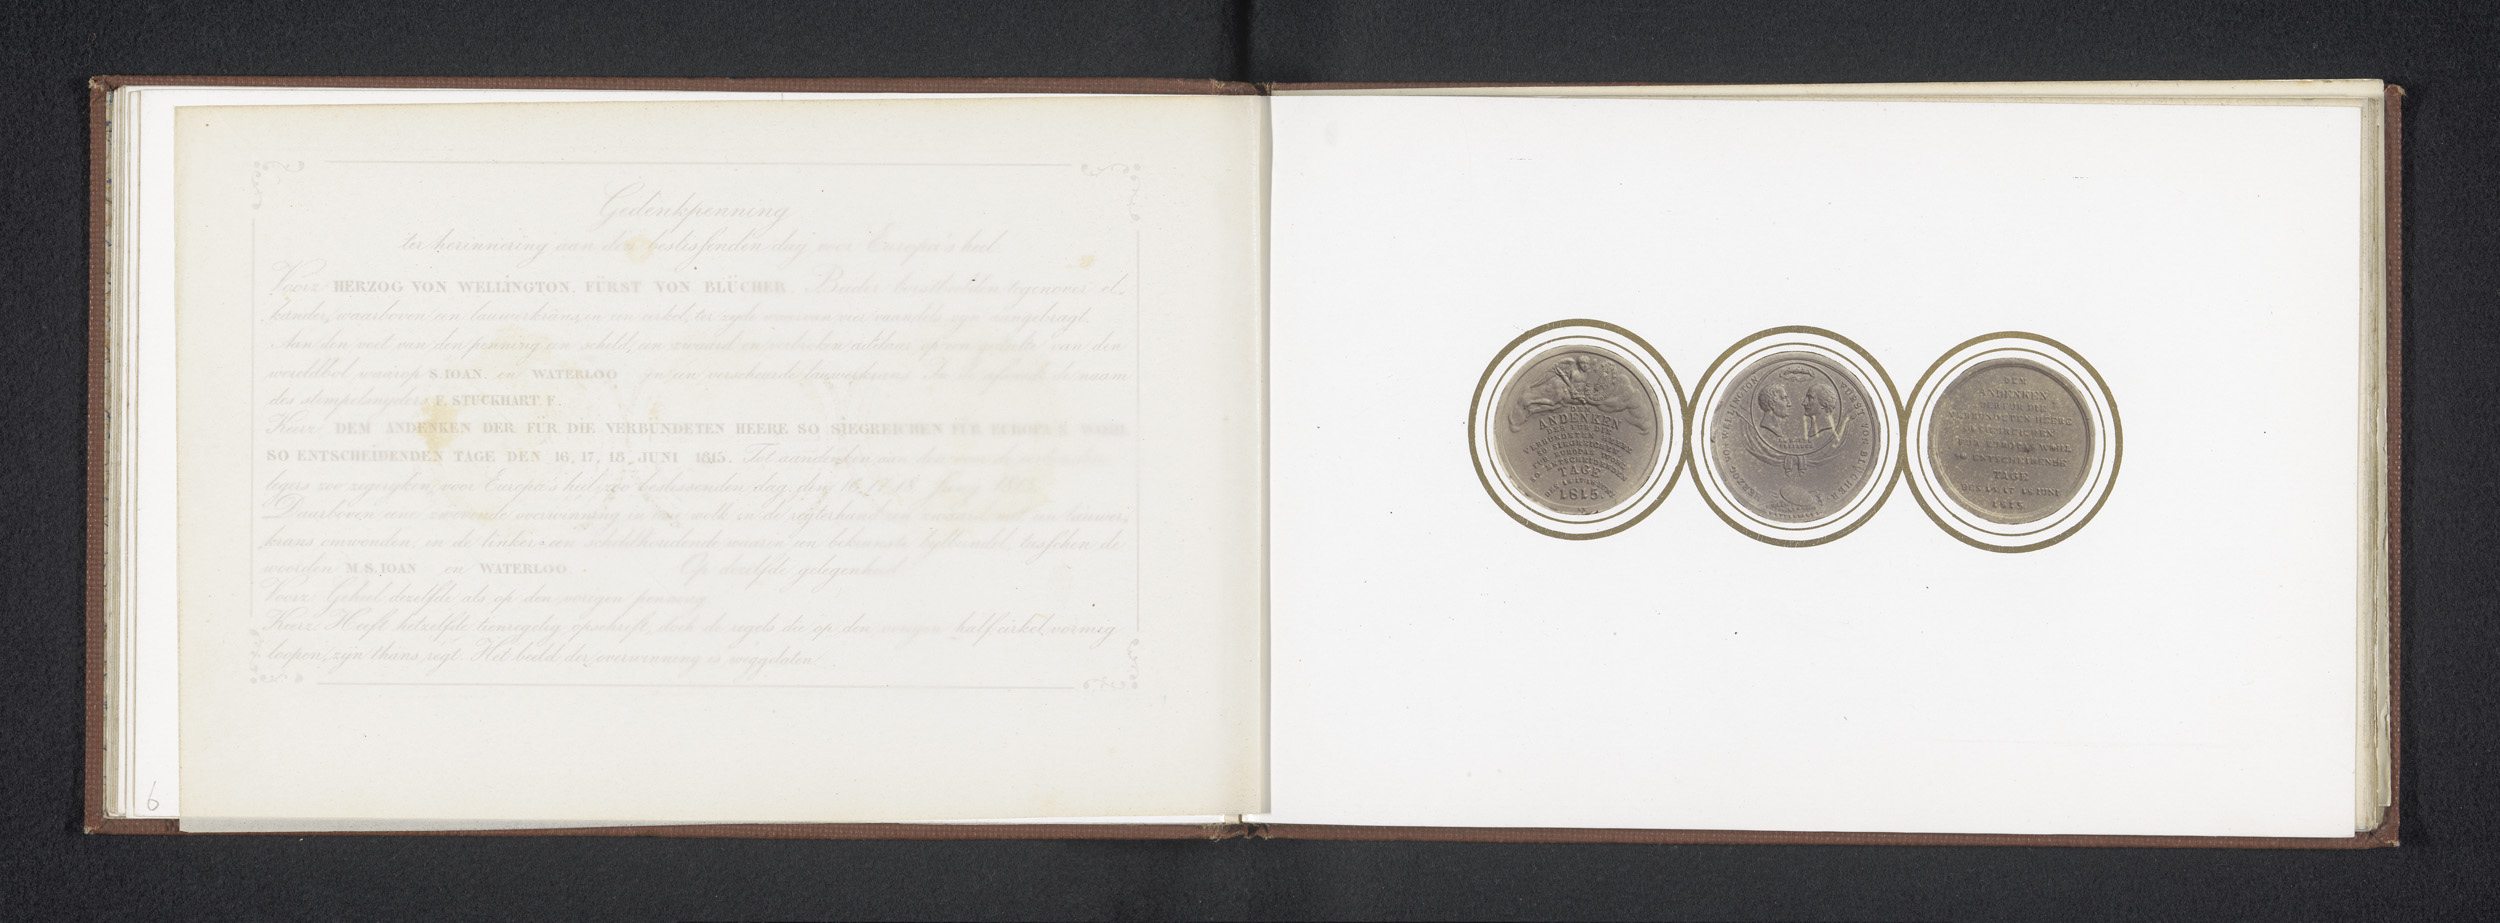 Gedenkpenning
ter herinnering aan den beslissenden dag voor Europa's heil
Voorz: HERZOG VON WELLINGTON. FÜRST VON BLÜCHER. Beider borstbeelden tegenover el-
kander, waarboven een lauwerkrans, in een cirkel, ter zyde waarvan vier mantels zyn aangebragt.
Aan den voet van den penning een schild, een zwaard en verbroken adelaar op een gedeelte van den
wereldbol waarop S. IOAN. en WATERLOO in een verscheurde lauwerkrans. In de afsnede de naam
des stempelsnyders F. STUCKHART. F.
Keerz: DEM ANDENKEN DER FÜR DIE VERBÜNDETEN HEERE SO SIEGREICHEN FÜR EUROPA'S WOHL
SO ENTSCHEIDENDEN TAGE DEN 16, 17, 18 JUNI 1815. Tot aandenken aan
legers zoo zegeryken, voor Europa's heil zoo beslissenden dag den 16 17 18 Juny 1815
Daarboven eene zwevende overwinning in eene wolk in de regterhand een zwaard met een lauwer-
krans omwonden, in de linker een schildhoudende waarin een bekranste bylbundel, tusschen de
woorden M. S. IOAN en WATERLOO. Op dezelfde gelegenheid
Voorz: Geheel dezelfde als op den vorigen penning
Keerz: Heeft hetzelfde tienregelig opschrift, doch de regels die op den vorigen half cirkel vormig
loopen, zyn thans regt. Het beeld der overwinning is weggelaten.
6
DEM
ANDENKEN
DER FÜR DIE
VERBÜNDETEN HEERE
SO SIEGREICHEN,
FÜR EUROPAS WOHL
SO ENTSCHEIDENDEN
TAGE
DES 16. 17. 18. JUNI
1815.
HERZOG VON WELLINGTON
FÜRST VON BLÜCHER
DEM
ANDENKEN
DER FÜR DIE
VERBÜNDETEN HEERE
SO SIEGREICHEN
FÜR EUROPAS WOHL
SO ENTSCHEIDENDE
TAGE
DES 16. 17. 18. JUNI
1815.